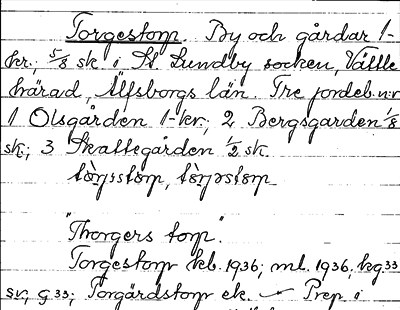 Torgestorp. By och gårdar 1-
kr., 5/8 sk i St. Lundby socken, Vättle
härad, Älfsborgs län. Tre jordeb.n:r
1 Olsgården 1-kr., 2 Bergsgarden 1/8
sk; 3 Skattegården 1/2 sk.
"Thorgers torp".
Torgestorp kb. 1936; ml. 1936, kg.33
sv., g 33; Torgärdstorp ek. Prep. i